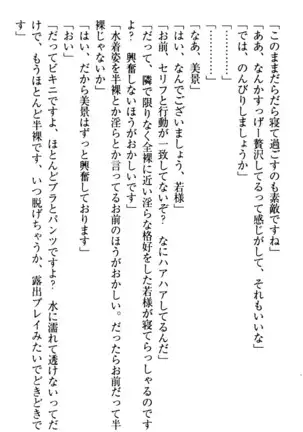 「このままだらだら寝て過ごすのも素敵ですね」
「ああ、なんかすっげー贅沢してるって感じがして、それもいいな」
「では、のんびりしましょうか」
「………」
「………」
「なあ、美景」
「はい、なんでございましょう、若様」
「お前、セリフと行動が一致してないぞ？　なにハアハアしてるんだ」
「だって、隣で限りなく全裸に近い淫らな格好をした若様が寝てらっしゃるのです
よ？　興奮しないほうがおかしいです」
「水着姿を半裸とか淫らとか言ってるお前のほうがおかしい。だったらお前だって半
裸じゃないか」
「はい、だから美景はずっと興奮しております」
「おい」
「だってビキニですよ、ほとんどブラとパンツですよ？　水に濡れて透けないってだ
けで、もうほとんど半裸です、いつ脱げちゃうか、露出プレイみたいでどきどきで
す」